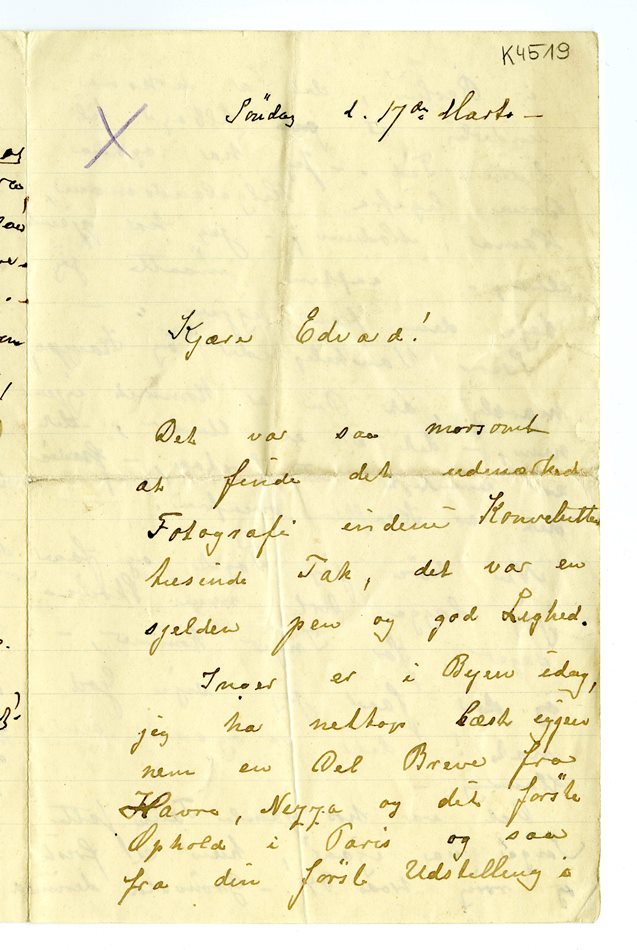 K4519
Söndag d. 17de Marts –
Kjære Edvard!
Det var saa morsomt
at finde det udmærked
Fotografi indeni Konvolutten
tusinde Tak, det var en
sjelden pen og god Lighed.
Inger er i Byen idag,
jeg ha nettop læst igjen
nem en Del Breve fra
Havre, Nezza og det første
Ophold i Paris og saa
fra din første Udstelling i